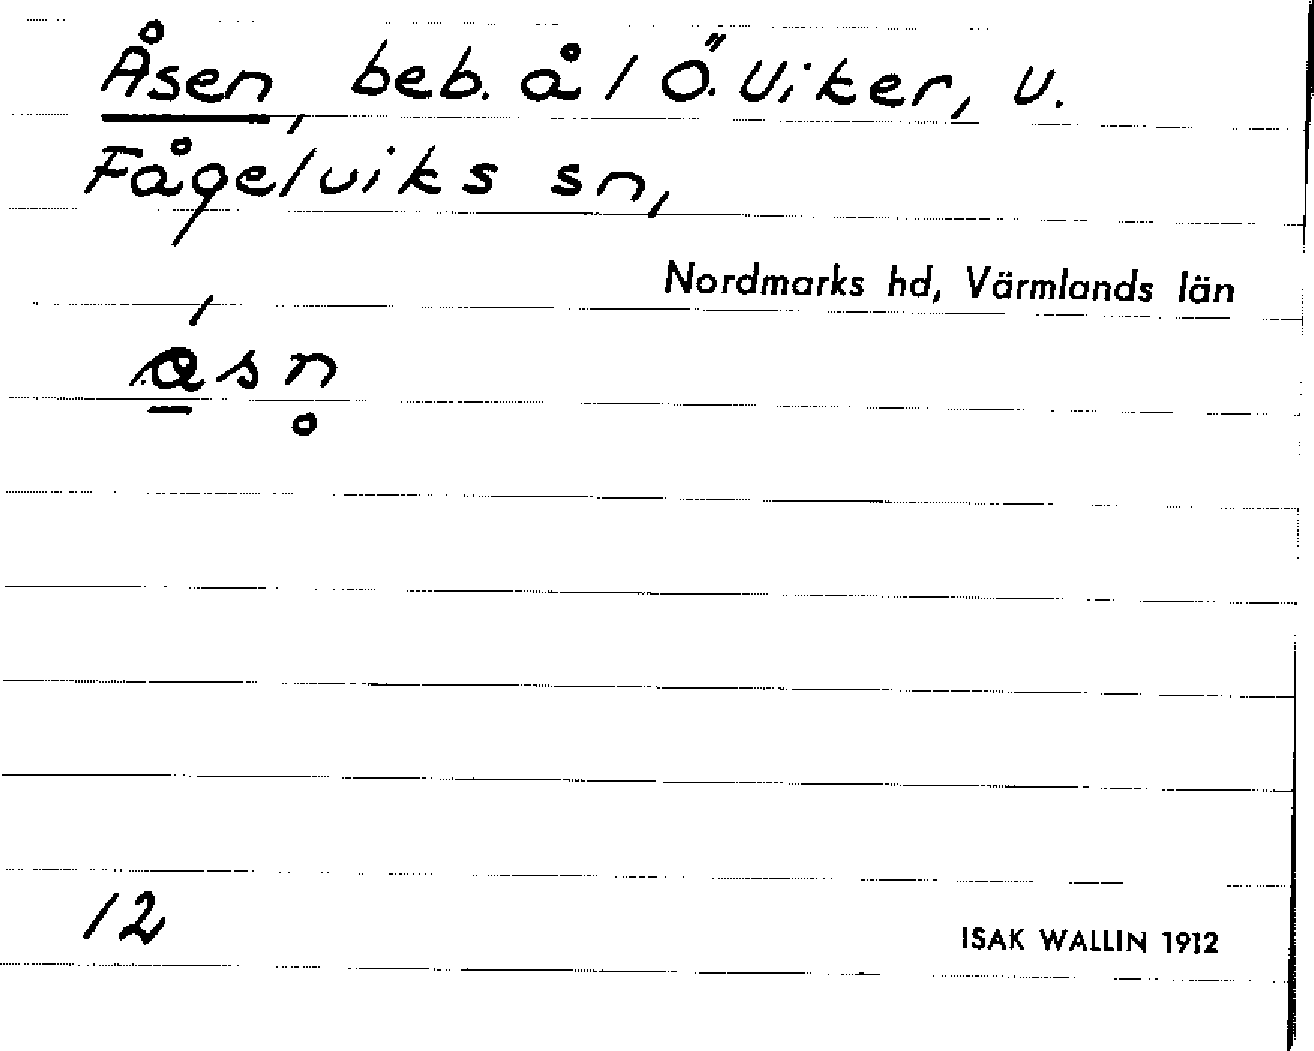 Åsen, beb. å 1 Ö. Viker, V.
Fågelviks sn,
Nordmarks hd, Värmlands län
ɑ̱́sn̥
12
ISAK WALLIN 1912